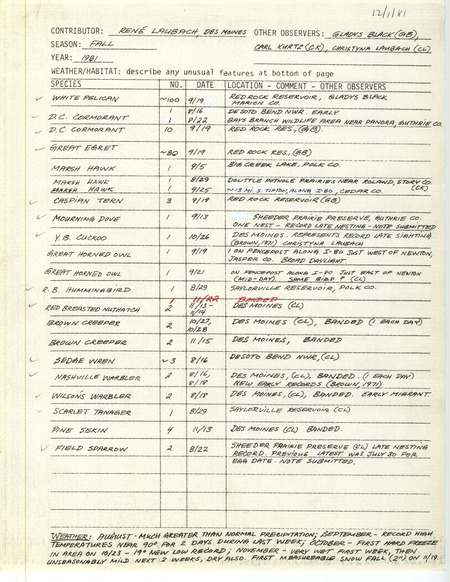 12/1/81
CONTRIBUTOR: RENÉ LAUBACH, DES MOINES OTHER OBSERVERS: GLADYS BLACK (GB),
SEASON: FALL CARL KURTZ (CK), CHRISTYNA LAUBACH (CL)
YEAR: 1981
WEATHER/HABITAT: describe any unusual features at bottom of page
SPECIES NO. DATE LOCATION - COMMENT - OTHER OBSERVERS
WHITE PELICAN ~100 9/19 RED ROCK RESERVOIR, GLADYS BLACK
MARION CO.
D.C. CORMORANT 1 8/16 DESOTO BEND NWR. EARLY
1 8/22 BAYS BRANCH WILDLIFE AREA NEAR PANORA, GUTHRIE CO.
D.C. CORMORANT 10 9/19 RED ROCK RES., (GB)
GREAT EGRET ~80 9/19 RED ROCK RES., (GB)
MARSH HAWK 1 9/5 BIG CREEK LAKE, POLK CO.
MARSH HAWK 1 8/29 DOLITTLE POTHOLE PRAIRIES NEAR ROLAND, STORY CO.
(CK)
MARSH HAWK 1 9/25 ~13 MI. S. TIPTON, ALONG I-80, CEDAR CO.
CASPIAN TERN 3 9/19 RED ROCK RESERVOIR (GB)
MOURNING DOVE 1 9/13 SHEEDER PRAIRIE PRESERVE, GUTHRIE CO.
ONE NEST - RECORD LATE NESTING - NOTE SUBMITTED
Y.B. CUCKOO 1 10/26 DES MOINES. REPRESENTS RECORD LATE SIGHTING
(BROWN, 1971) CHRISTYNA LAUBACH
GREAT HORNED OWL 9/19 1 ON FENCEPOST ALONG I-80 JUST WEST OF NEWTON,
JASPER CO. BROAD DAYLIGHT
GREAT HORNED OWL 1 9/21 ON FENCEPOST ALONG I-80 JUST EAST OF NEWTON
(MID-DAY). SAME BIRD? (CL)
R.B. HUMMINGBIRD 1 8/29 SAYLORVILLE RESERVOIR, POLK CO.
1 11/22 BANDED
RED BREASTED NUTHATCH 2 11/13-
11/14 DES MOINES (CL)
BROWN CREEPER 2 10/27,
10/28 DES MOINES (CL), BANDED (1 EACH DAY)
BROWN CREEPER 2 11/15 DES MOINES, BANDED
SEDGE WREN ~3 8/16 DESOTO BEND NWR, (CL)
NASHVILLE WARBLER 2 8/16,
8/18 DES MOINES, (CL), BANDED. (1 EACH DAY)
NEW EARLY RECORDS (BROWN, 1971)
WILSON'S WARBLER 2 8/18 DES MOINES, (CL), BANDED. EARLY MIGRANT.
SCARLET TANAGER 1 8/29 SAYLORVILLE RESERVOIR (CL)
PINE SISKIN 4 11/13 DES MOINES (CL) BANDED.
FIELD SPARROW 2 8/22 SHEEDER PRAIRIE PRESERVE (CL) LATE NESTING
RECORD. PREVIOUS LATEST WAS JULY 30 FOR
EGG DATE. NOTE SUBMITTED.
WEATHER: AUGUST - MUCH GREATER THAN NORMAL PRECIPITATION; SEPTEMBER - RECORD HIGH
TEMPERATURES NEAR 90° FOR 2 DAYS DURING LAST WEEK; OCTOBER - FIRST HARD FREEZE
IN AREA ON 10/23 - 19° NEW LOW RECORD; NOVEMBER - VERY WET FIRST WEEK, THEN
UNSEASONABLY MILD NEXT 2 WEEKS, DRY ALSO. FIRST MEASUREABLE SNOW FALL (2") ON 11/19.